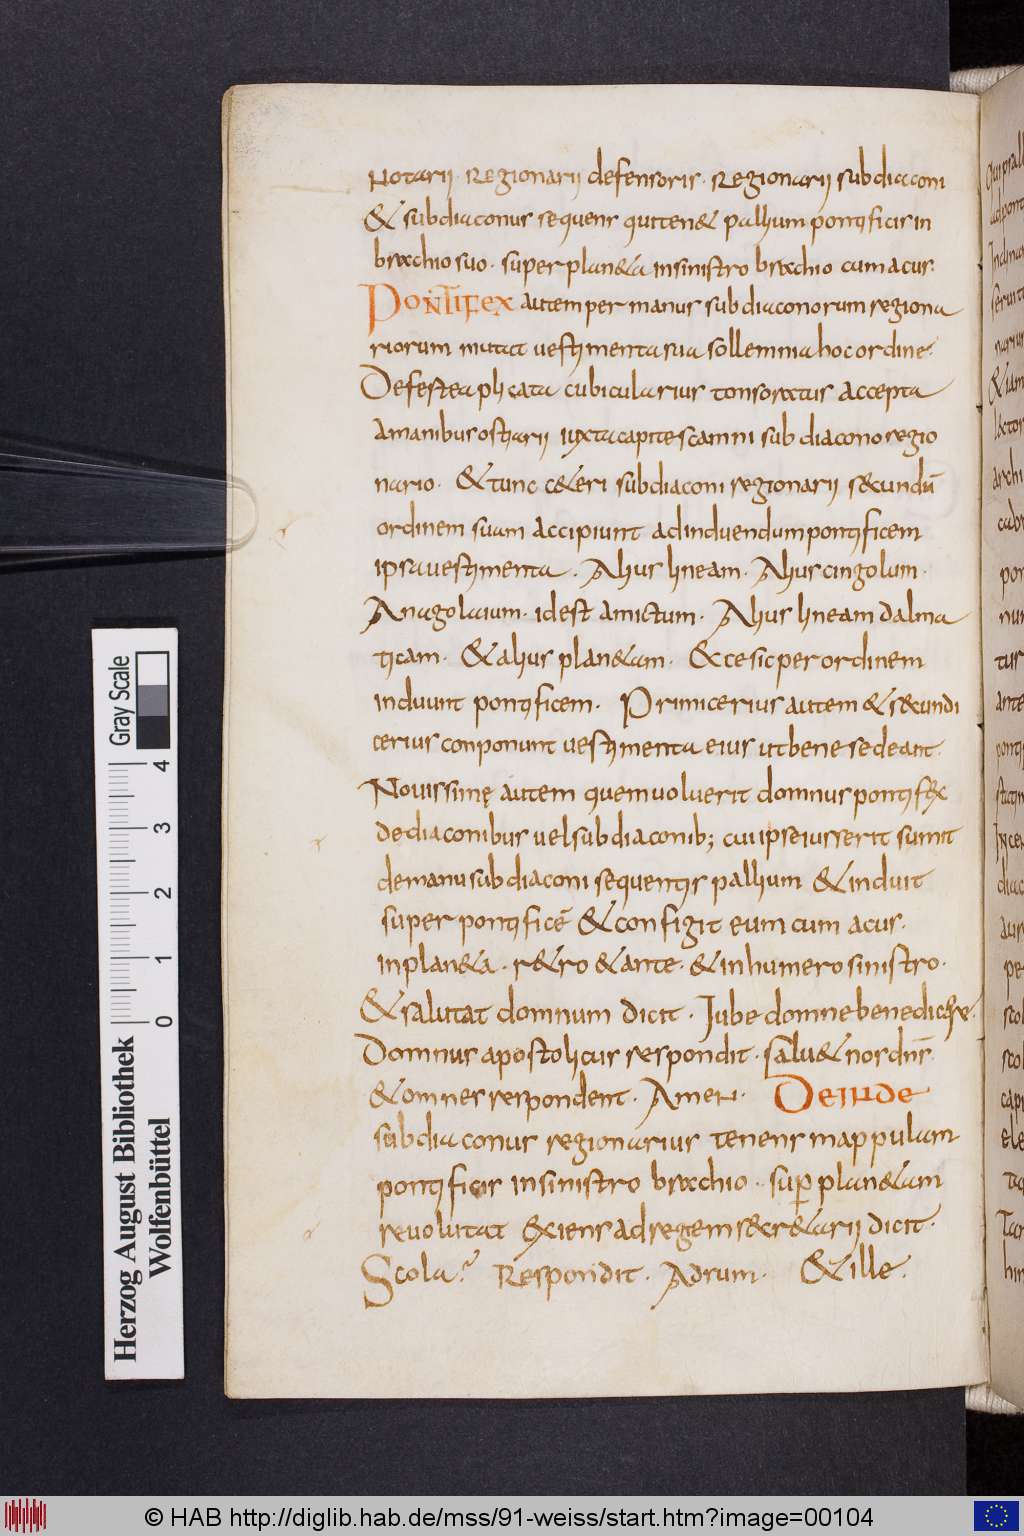 Notarii · Regionarii defensoris · Regionarii subdiaconi
& subdiaconus sequens qui ten& pallium pontificis in
brachio suo · super plan&a in sinistro brachio cum acus:
PONTIFEX autem per manus subdiaconorum regiona
riorum mutat vestimenta sua sollemnia hoc ordine.
Defestea plicata cubicularius tonsoratus accepta
a manibus ostiarii iuxta capite scamni subdiacono regio
nario · & tunc c&eri subdiaconi regionarii secundū
ordinem suam accipiunt ad induendum pontificem
ipsa vestimenta · Alius lineam · Alius cingolum ·
Anagolaium · id est amictum · Alius lineam dalma
ticam · & alius plan&am · & ce sic per ordinem
induunt pontificem · Primicerius autem & secundi
cerius conponunt vestimenta eius ut bene sedeant.
Novissimę autem quem voluerit domnus pontifex
de diaconibus vel subdiaconib; cui ipse iusserit sumit
de manu subdiaconi sequentis pallium & induit
super pontificē & configit eum cum acus.
in plan&a · r&ro & ante · & in humero sinistro ·
& salutat domnum dicit · Jube domne benedicere.
Domnus apostolicus respondit · salu& nos dn̄s
& omnes respondent · Amen · Deinde
subdiaconus regionarius tenens mappulam
pontificis in sinistro brachio · sup plan&am
revolutat exiens ad regem secr&arii dicit ·
Scola? Respondit · Adsum · & ille.
Gray Scale
4
3
2
1
0
Herzog August Bibliothek
Wolfenbüttel
© HAB http://diglib.hab.de/mss/91-weiss/start.htm?image=00104